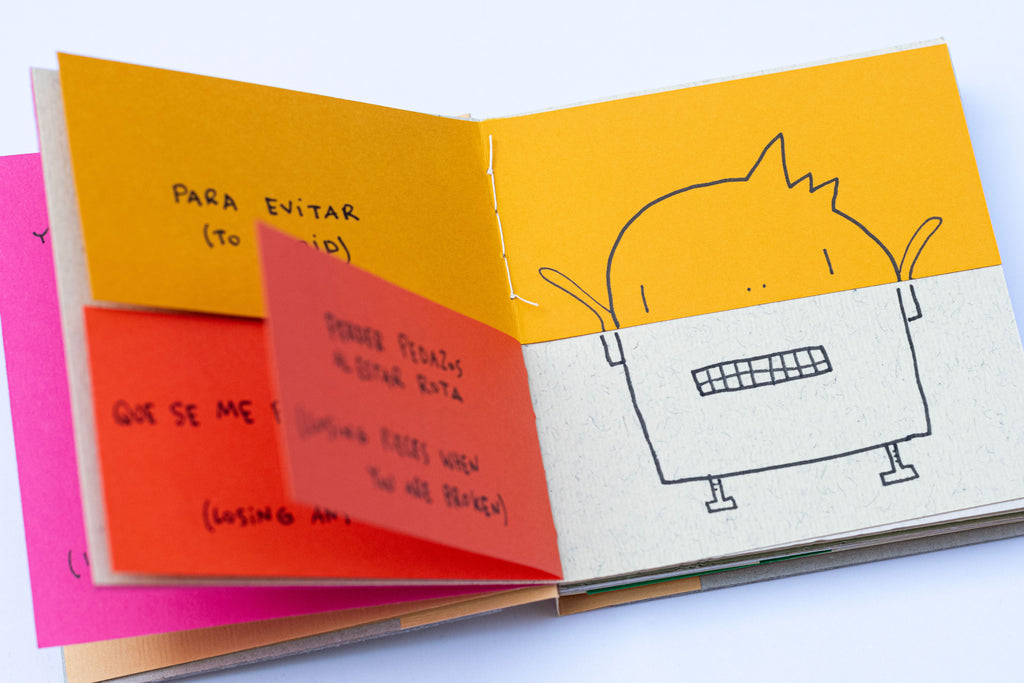 PARA EVITAR
(TO
PERDER PEDAZOS
AL ESTAR ROTA
(LOSING PIECES WHEN
YOU ARE BROKEN)
QUE SE ME
(LOSING
Y